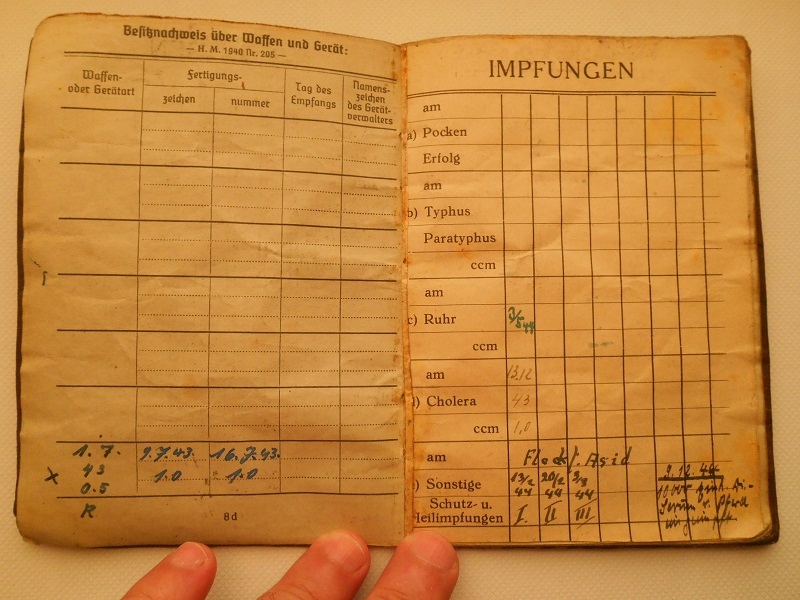 Besitznachweis über Waffen und Gerät:
— H. M. 1940 Nr. 295 —
Waffen-
oder Gerätart
Fertigungs-
zeichen
nummer
Tag des
Empfangs
Namens-
zeichen
des Gerät-
verwalters
1. 7.
43
0.5
9.7.43.
1.0
16.7.43.
1.0
x
R
8d
IMPFUNGEN
am
a) Pocken
Erfolg
am
b) Typhus
Paratyphus
ccm
am
c) Ruhr
3/5 44
ccm
am
13.12
) Cholera
43
ccm
1,0
am
) Sonstige
Schutz- u.
Heilimpfungen
13/2
44
I.
20/2
44
II
44
III
9.12.44